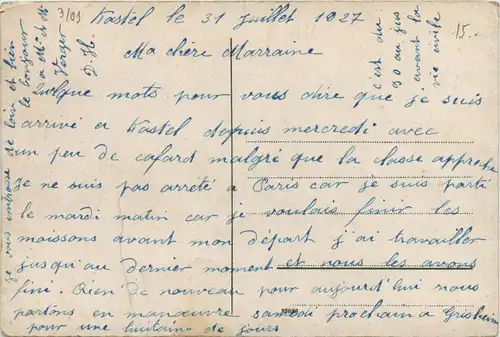 3/09
Kastel le 31 juillet 1927
15.-
Ma chère Marraine
Quelque mots pour vous dire que je suis
arrivé a Kastel depuis mercredi avec
un peu de cafard malgré que la classe approche
Je ne suis pas arrété a Paris car je suis parti
le mardi matin car je voulais finir les
moissons avant mon départ j'ai travailler
jusqu'au dernier moment et nous les avons
fini. Rien de nouveau pour aujourd'hui nous
partons en manœuvre samedi prochain a Griesheim
pour une huitaine de jours
je vous embrasse de loin et bien
le bonjour
a Mr et Me
c'est du
90 au jus
avant la
vie civile